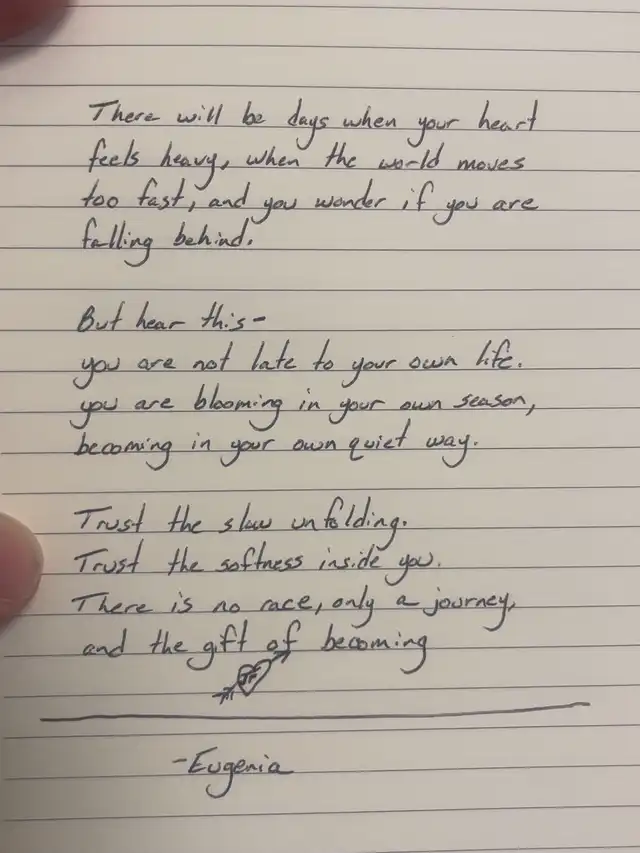 There will be days when your heart
feels heavy, when the world moves
too fast, and you wonder if you are
falling behind.
But hear this-
you are not late to your own life.
you are blooming in your own season,
becoming in your own quiet way.
Trust the slow unfolding.
Trust the softness inside you.
There is no race, only a journey,
and the gift of becoming
-Eugenia